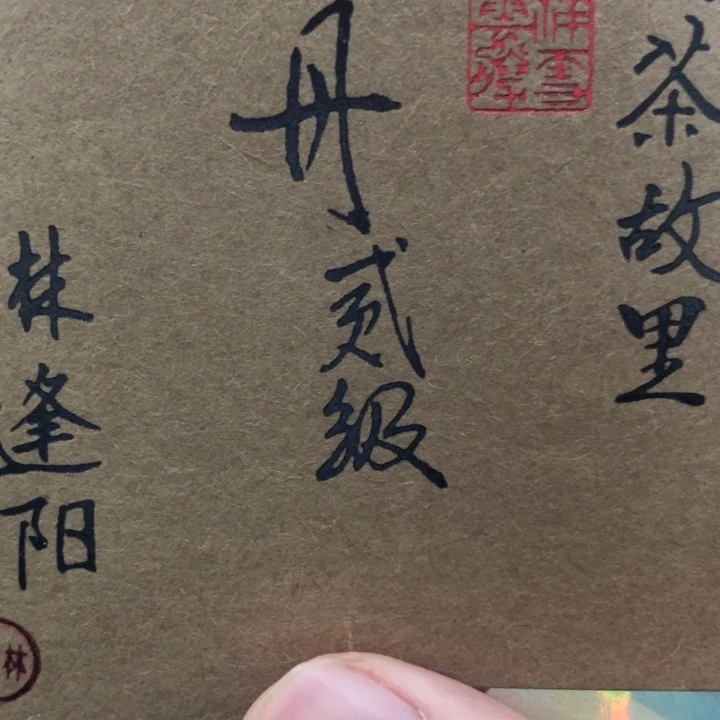 茶故里
丹贰级
林逢阳
林